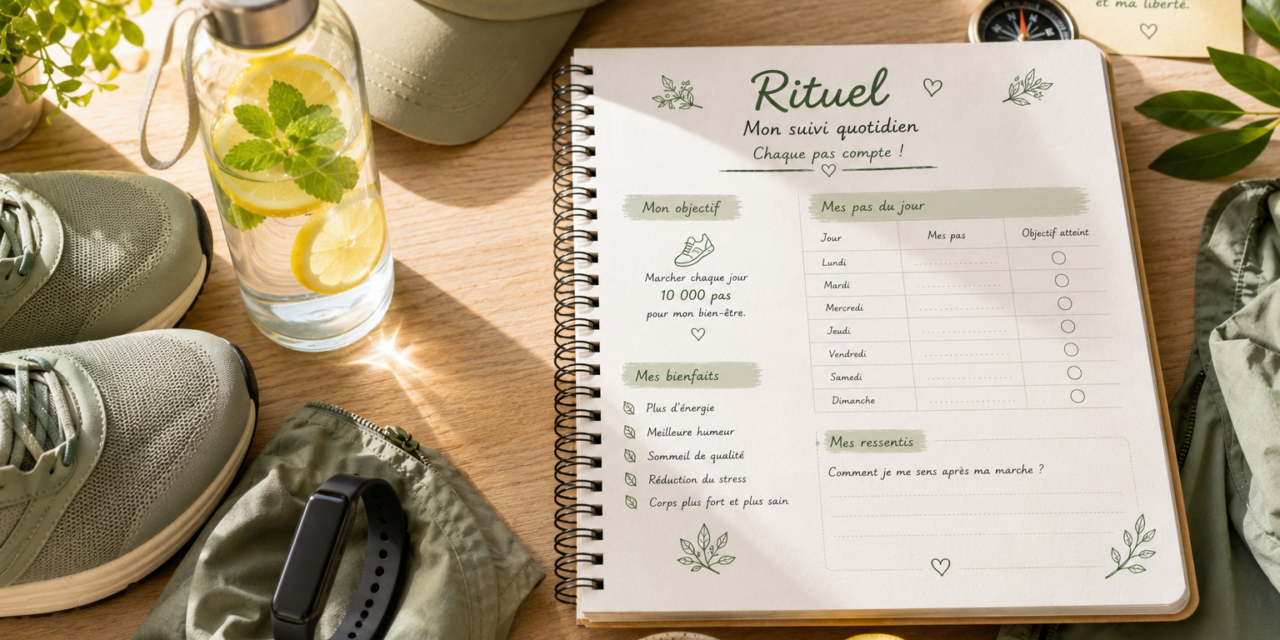 et ma liberté.
Rituel
Mon suivi quotidien
Chaque pas compte !
Mon objectif
Marcher chaque jour
10 000 pas
pour mon bien-être.
Mes bienfaits
Plus d'énergie
Meilleure humeur
Sommeil de qualité
Réduction du stress
Corps plus fort et plus sain
Mes pas du jour
Jour Mes pas Objectif atteint
Lundi
Mardi
Mercredi
Jeudi
Vendredi
Samedi
Dimanche
Mes ressentis
Comment je me sens après ma marche ?